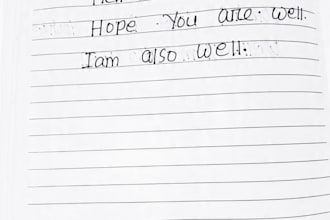 Hope You are. well.
I am also well.